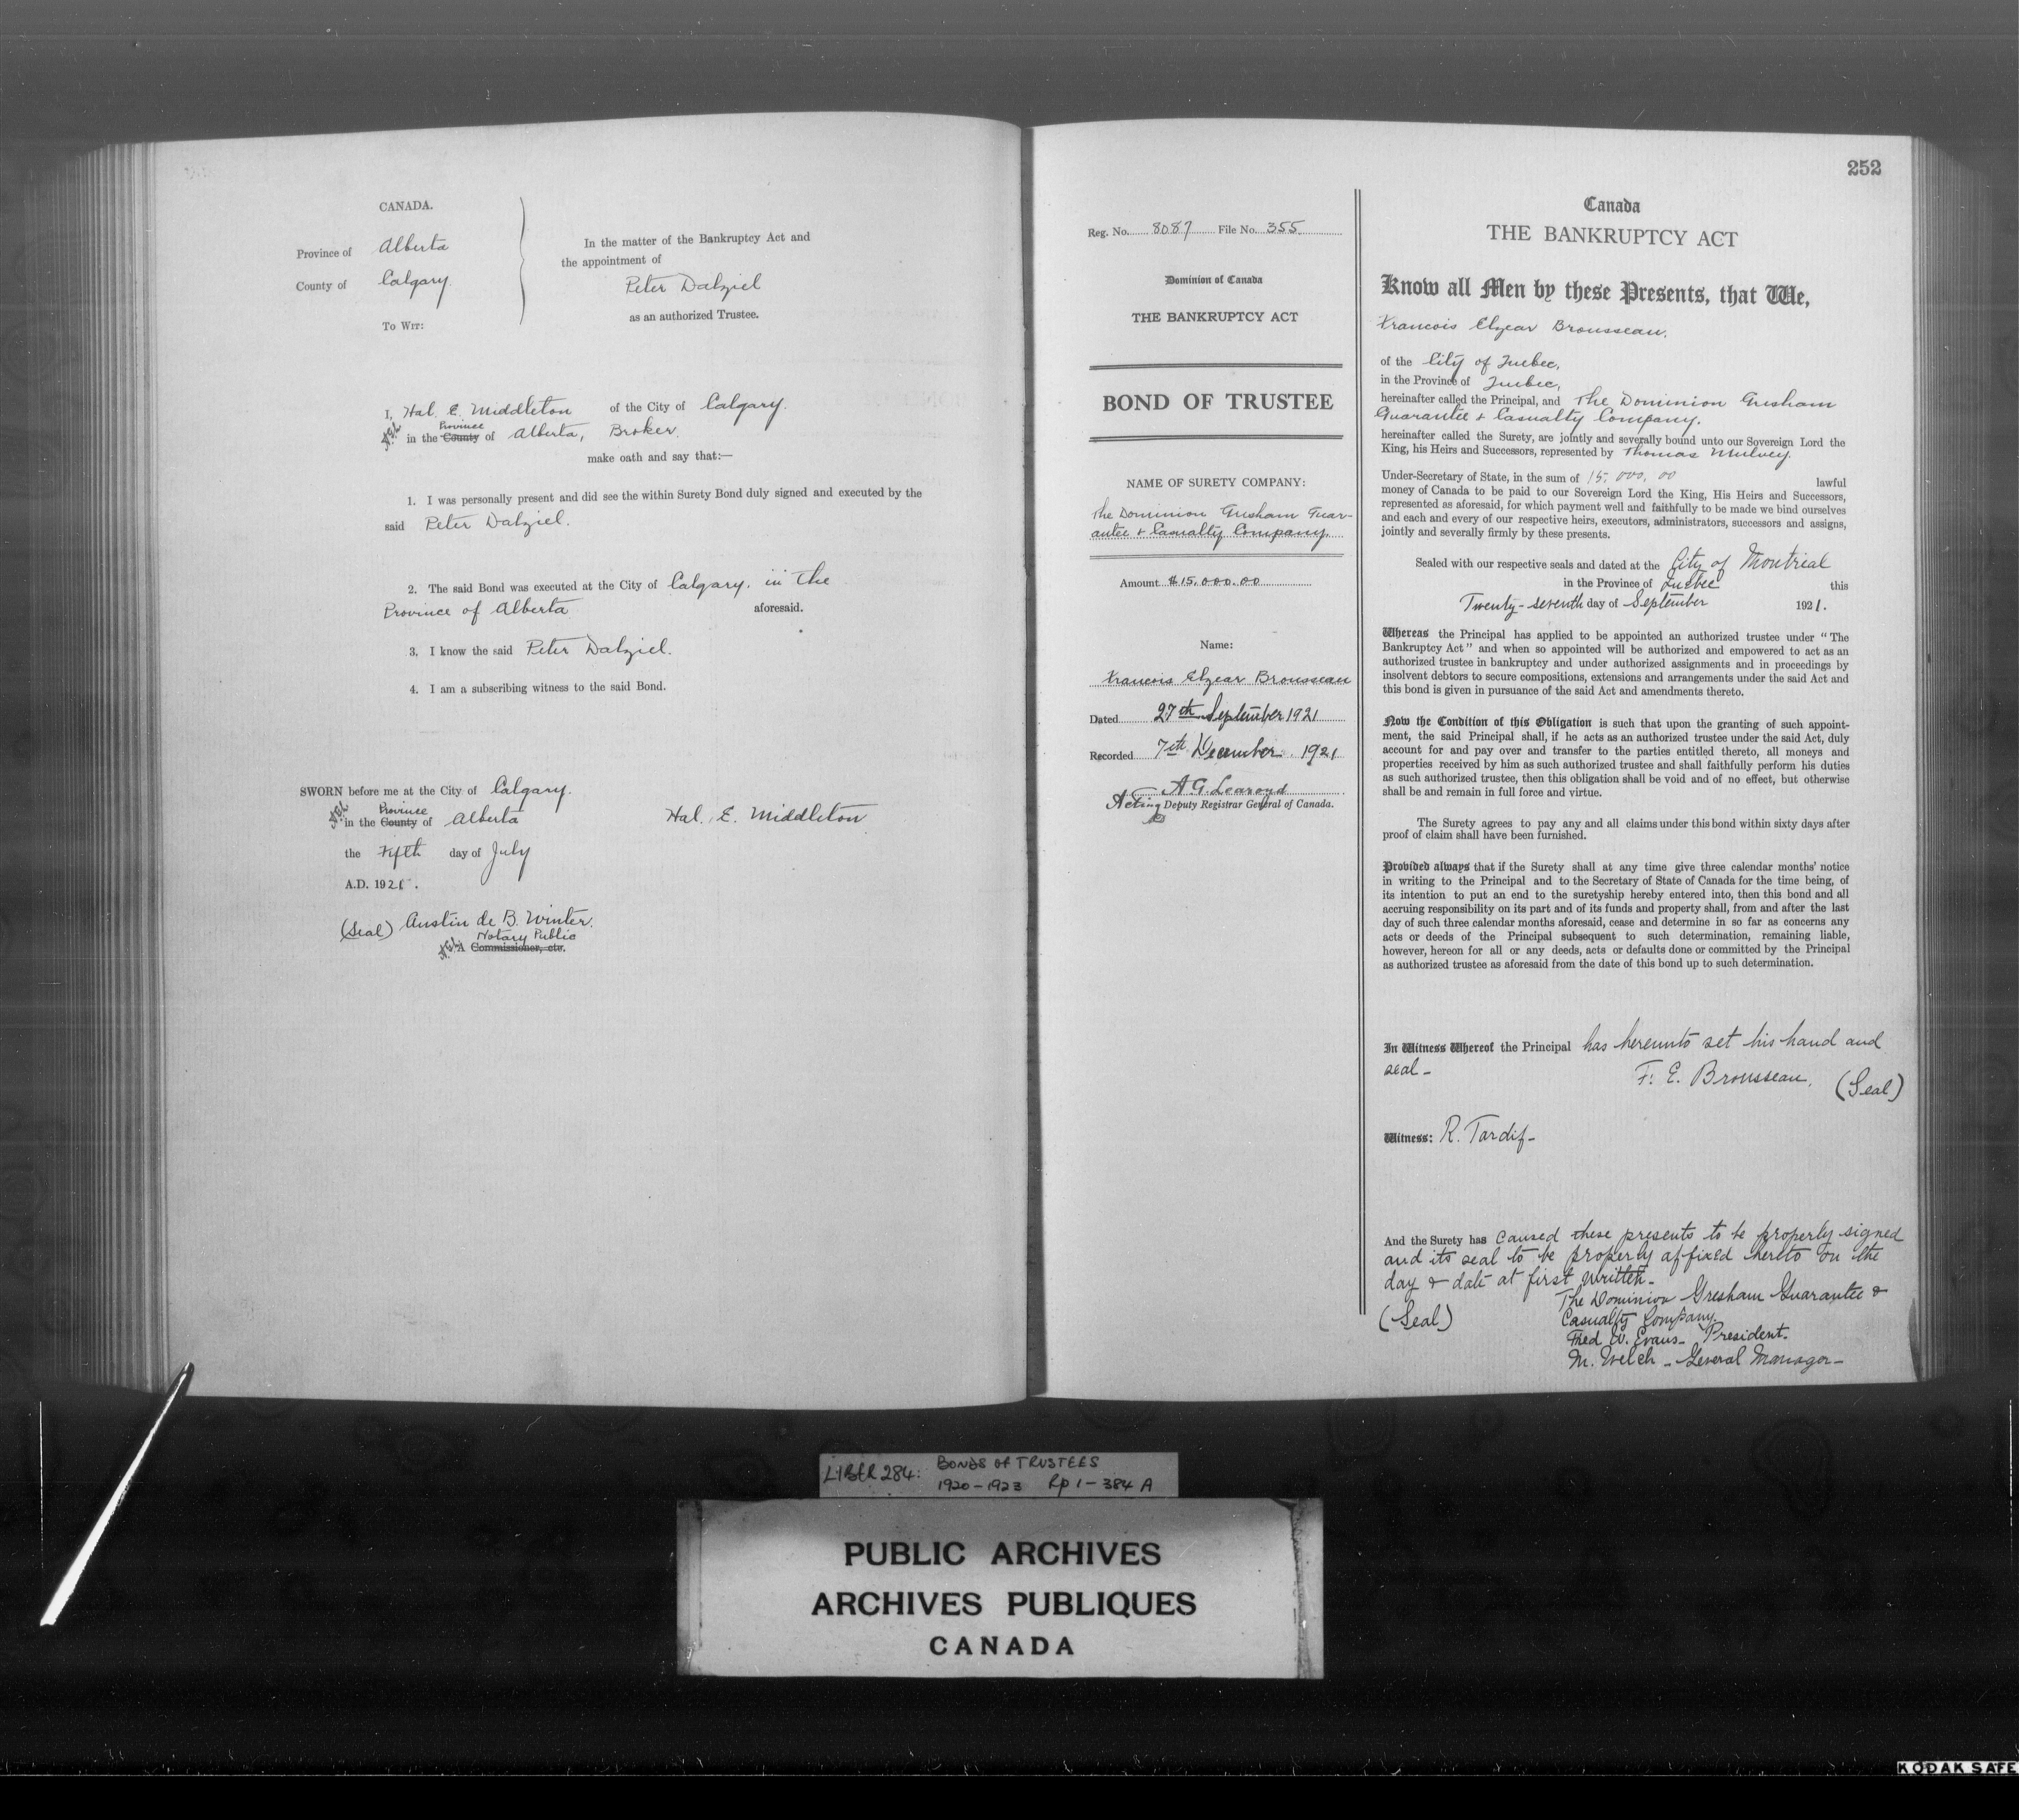 CANADA.
Province of Alberta
County of Calgary.
To Wit:
In the matter of the Bankruptcy Act and
the appointment of
Peter Dalziel
as an authorized Trustee.
I, Hal. E. Middleton of the City of Calgary.
Province
in the County of Alberta, Broker.
make oath and say that:—
1. I was personally present and did see the within Surety Bond duly signed and executed by the
said Peter Dalziel.
2. The said Bond was executed at the City of Calgary. in the
Province of Alberta aforesaid.
3. I know the said Peter Dalziel.
4. I am a subscribing witness to the said Bond.
SWORN before me at the City of Calgary.
Province
in the County of Alberta
the Fifth day of July
A.D. 1921.
Hal. E. Middleton
(Seal) Austin de B. Winter.
Notary Public
A Commissioner, etc.
Reg. No. 8087 File No. 355
Dominion of Canada
THE BANKRUPTCY ACT
BOND OF TRUSTEE
NAME OF SURETY COMPANY:
The Dominion Gresham Guar-
antee & Casualty Company.
Amount $15,000.00
Name:
Francois Elzear Brousseau
Dated 27th September 1921
Recorded 7th December 1921
A. G. Learoyd
Acting Deputy Registrar General of Canada.
252
Canada
THE BANKRUPTCY ACT
Know all Men by these Presents, that We,
Francois Elzear Brousseau.
of the City of Quebec,
in the Province of Quebec,
hereinafter called the Principal, and The Dominion Gresham
Guarantee & Casualty Company.
hereinafter called the Surety, are jointly and severally bound unto our Sovereign Lord the
King, his Heirs and Successors, represented by Thomas Mulvey.
Under-Secretary of State, in the sum of 15,000.00 lawful
money of Canada to be paid to our Sovereign Lord the King, His Heirs and Successors,
represented as aforesaid, for which payment well and faithfully to be made we bind ourselves
and each and every of our respective heirs, executors, administrators, successors and assigns,
jointly and severally firmly by these presents.
Sealed with our respective seals and dated at the City of Montreal
in the Province of Quebec this
Twenty-seventh day of September 1921.
Whereas the Principal has applied to be appointed an authorized trustee under "The
Bankruptcy Act" and when so appointed will be authorized and empowered to act as an
authorized trustee in bankruptcy and under authorized assignments and in proceedings by
insolvent debtors to secure compositions, extensions and arrangements under the said Act and
this bond is given in pursuance of the said Act and amendments thereto.
Now the Condition of this Obligation is such that upon the granting of such appoint-
ment, the said Principal shall, if he acts as an authorized trustee under the said Act, duly
account for and pay over and transfer to the parties entitled thereto, all moneys and
properties received by him as such authorized trustee and shall faithfully perform his duties
as such authorized trustee, then this obligation shall be void and of no effect, but otherwise
shall be and remain in full force and virtue.
The Surety agrees to pay any and all claims under this bond within sixty days after
proof of claim shall have been furnished.
Provided always that if the Surety shall at any time give three calendar months' notice
in writing to the Principal and to the Secretary of State of Canada for the time being, of
its intention to put an end to the suretyship hereby entered into, then this bond and all
accruing responsibility on its part and of its funds and property shall, from and after the last
day of such three calendar months aforesaid, cease and determine in so far as concerns any
acts or deeds of the Principal subsequent to such determination, remaining liable,
however, hereon for all or any deeds, acts or defaults done or committed by the Principal
as authorized trustee as aforesaid from the date of this bond up to such determination.
In Witness Whereof the Principal has hereunto set his hand and
seal -
F. E. Brousseau. (Seal)
Witness: R. Tardif -
And the Surety has caused these presents to be properly signed
and its seal to be properly affixed hereto on the
day & date at first written -
The Dominion Gresham Guarantee &
Casualty Company.
(Seal)
Fred W. Evans - President -
M. Welch - General Manager -
LIBER 284: BONDS OF TRUSTEES
1920-1923 Rp 1-384 A
PUBLIC ARCHIVES
ARCHIVES PUBLIQUES
CANADA
KODAK SAFE